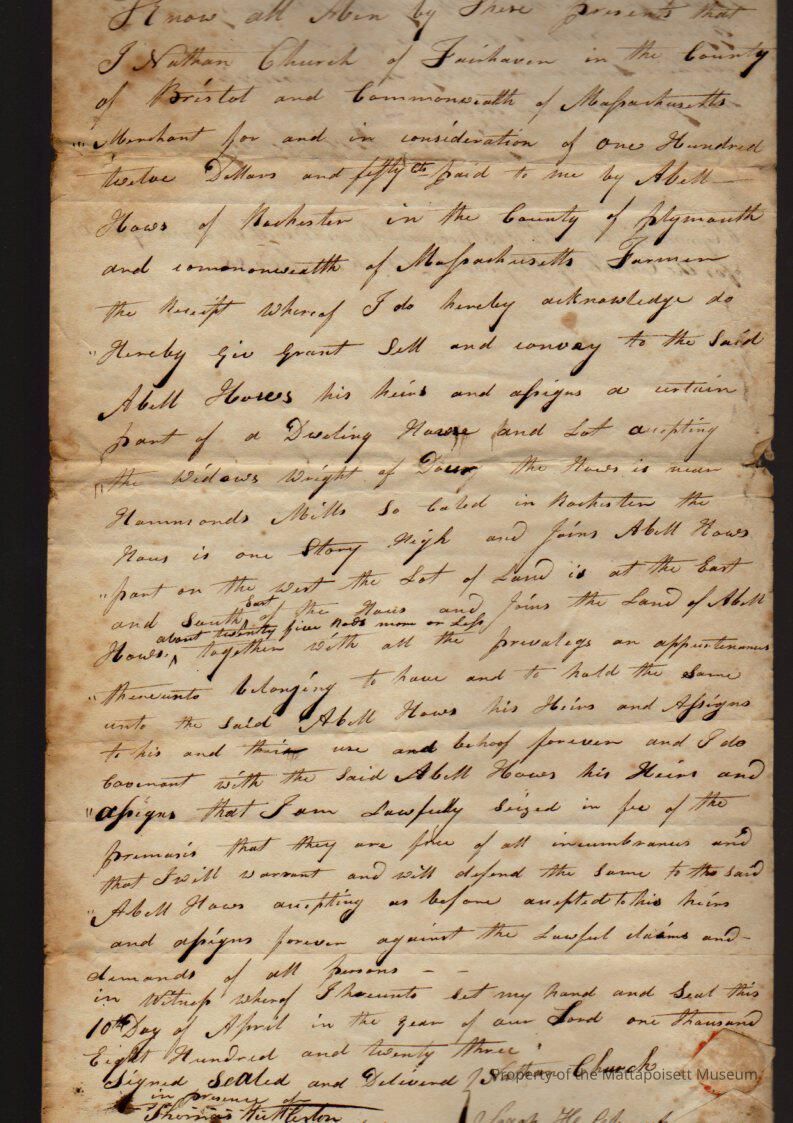 Know all Men by These presents that
I Nathan Church of Fairhaven in the County
of Bristol and Commonwealth of Massachusetts
Merchant for and in consideration of one Hundred
twelve Dollars and fifty cts paid to me by Abell
Hows of Rochester in the County of plymouth
and commonwealth of Massachusetts Farmer
the Receipt whereof I do hereby acknowledge do
Hereby Giv Grant Sell and convay to the Said
Abell Howes his heirs and assigns a certain
part of a Dweling House and Lot accepting
the widows wright of Dour the Hows is near
Hammonds Mills So Caled in Rochester the
Hous is one Story High and Joins Abell Hows
part on the west the Lot of Land is at the East
and South East of the Hows and Joins the Land of Abell
Hows about twenty five Rods more or Less together with all the privalegs an appurtenances
thereunto belonging to have and to hold the Same
unto the Said Abell Hows his Heirs and Assigns
to his and their use and behoof forever and I do
Covenant with the Said Abell Howes his Heirs and
assigns that I am Lawfully Seized in fee of the
premasis that they are free of all incumbrances and
that I will warrant and will defend the Same to the said
Abell Hows accepting as before accepted to his heirs
and assigns forever against the Lawful claims and
demands of all persons
in Witness whereof I hereunto Set my hand and Seal this
10th Day of April in the year of our Lord one thousand
Eight Hundred and twenty three
Signed Sealed and Delivered Nathan Church
in presence of
Thomas
Property of the Mattapoisett Museum